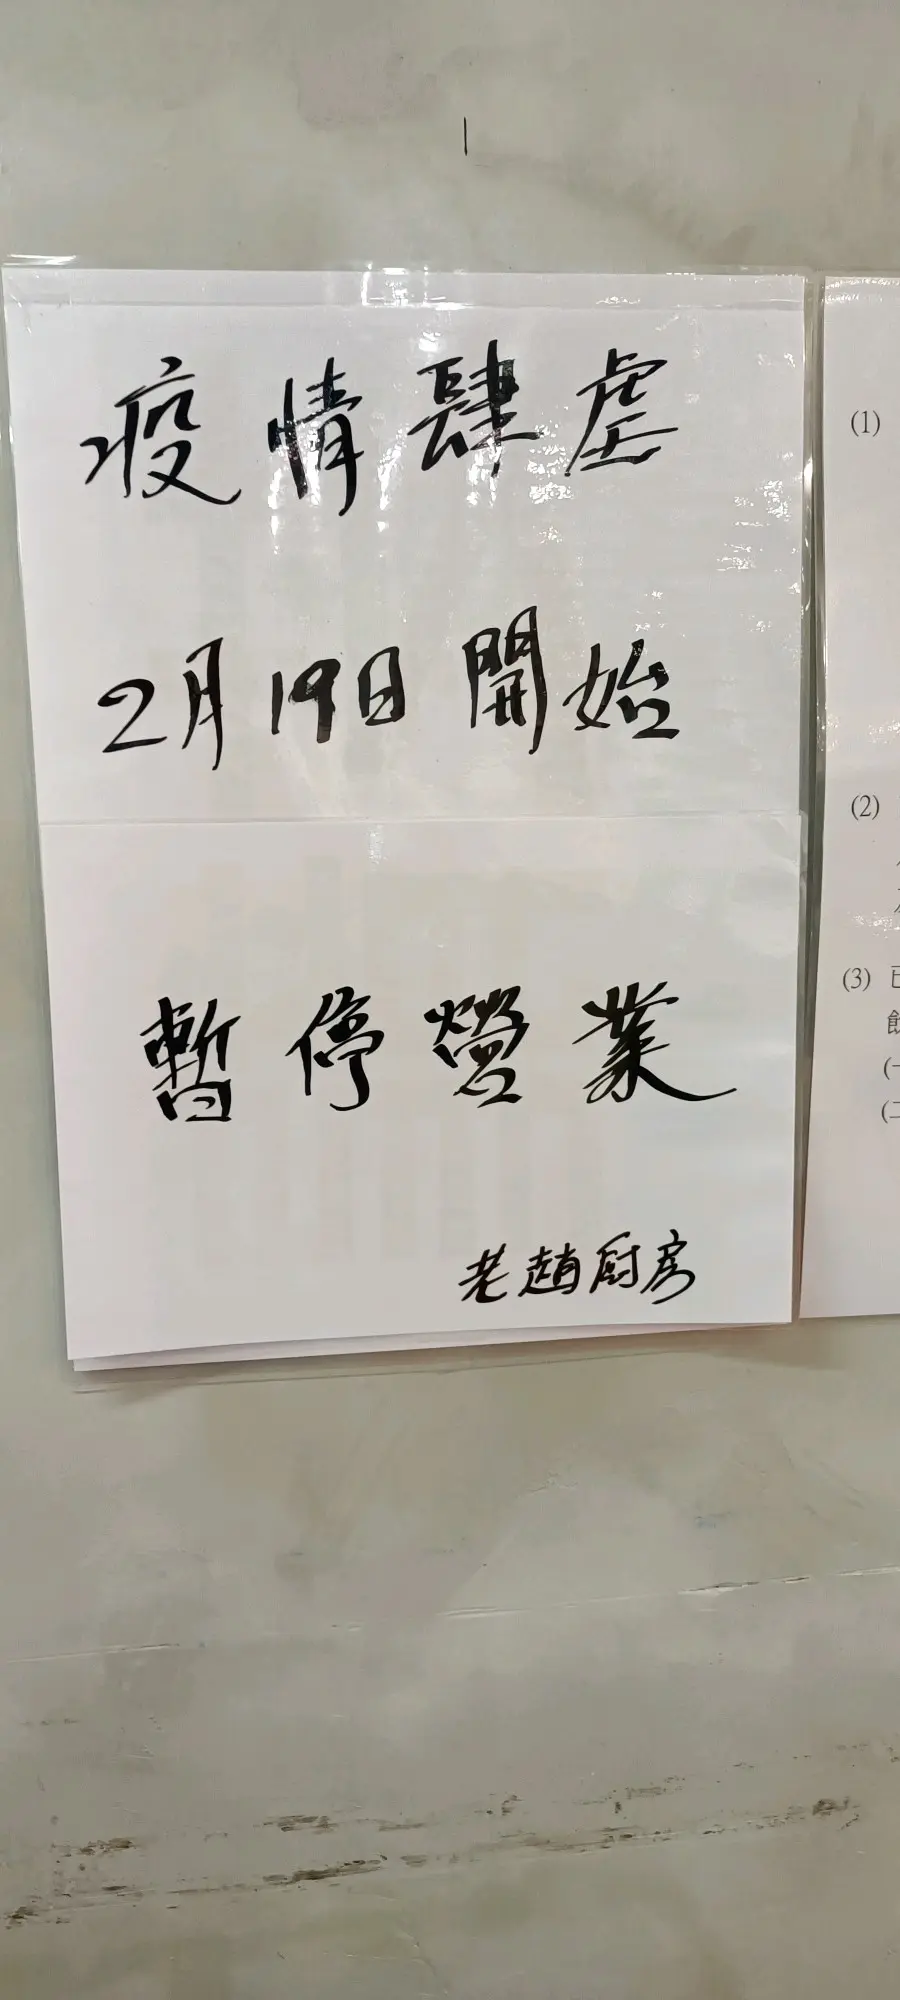 疫情肆虐
2月19日開始
暫停營業
老趙厨房
(1)
(2)
(3) 已
(一
(二